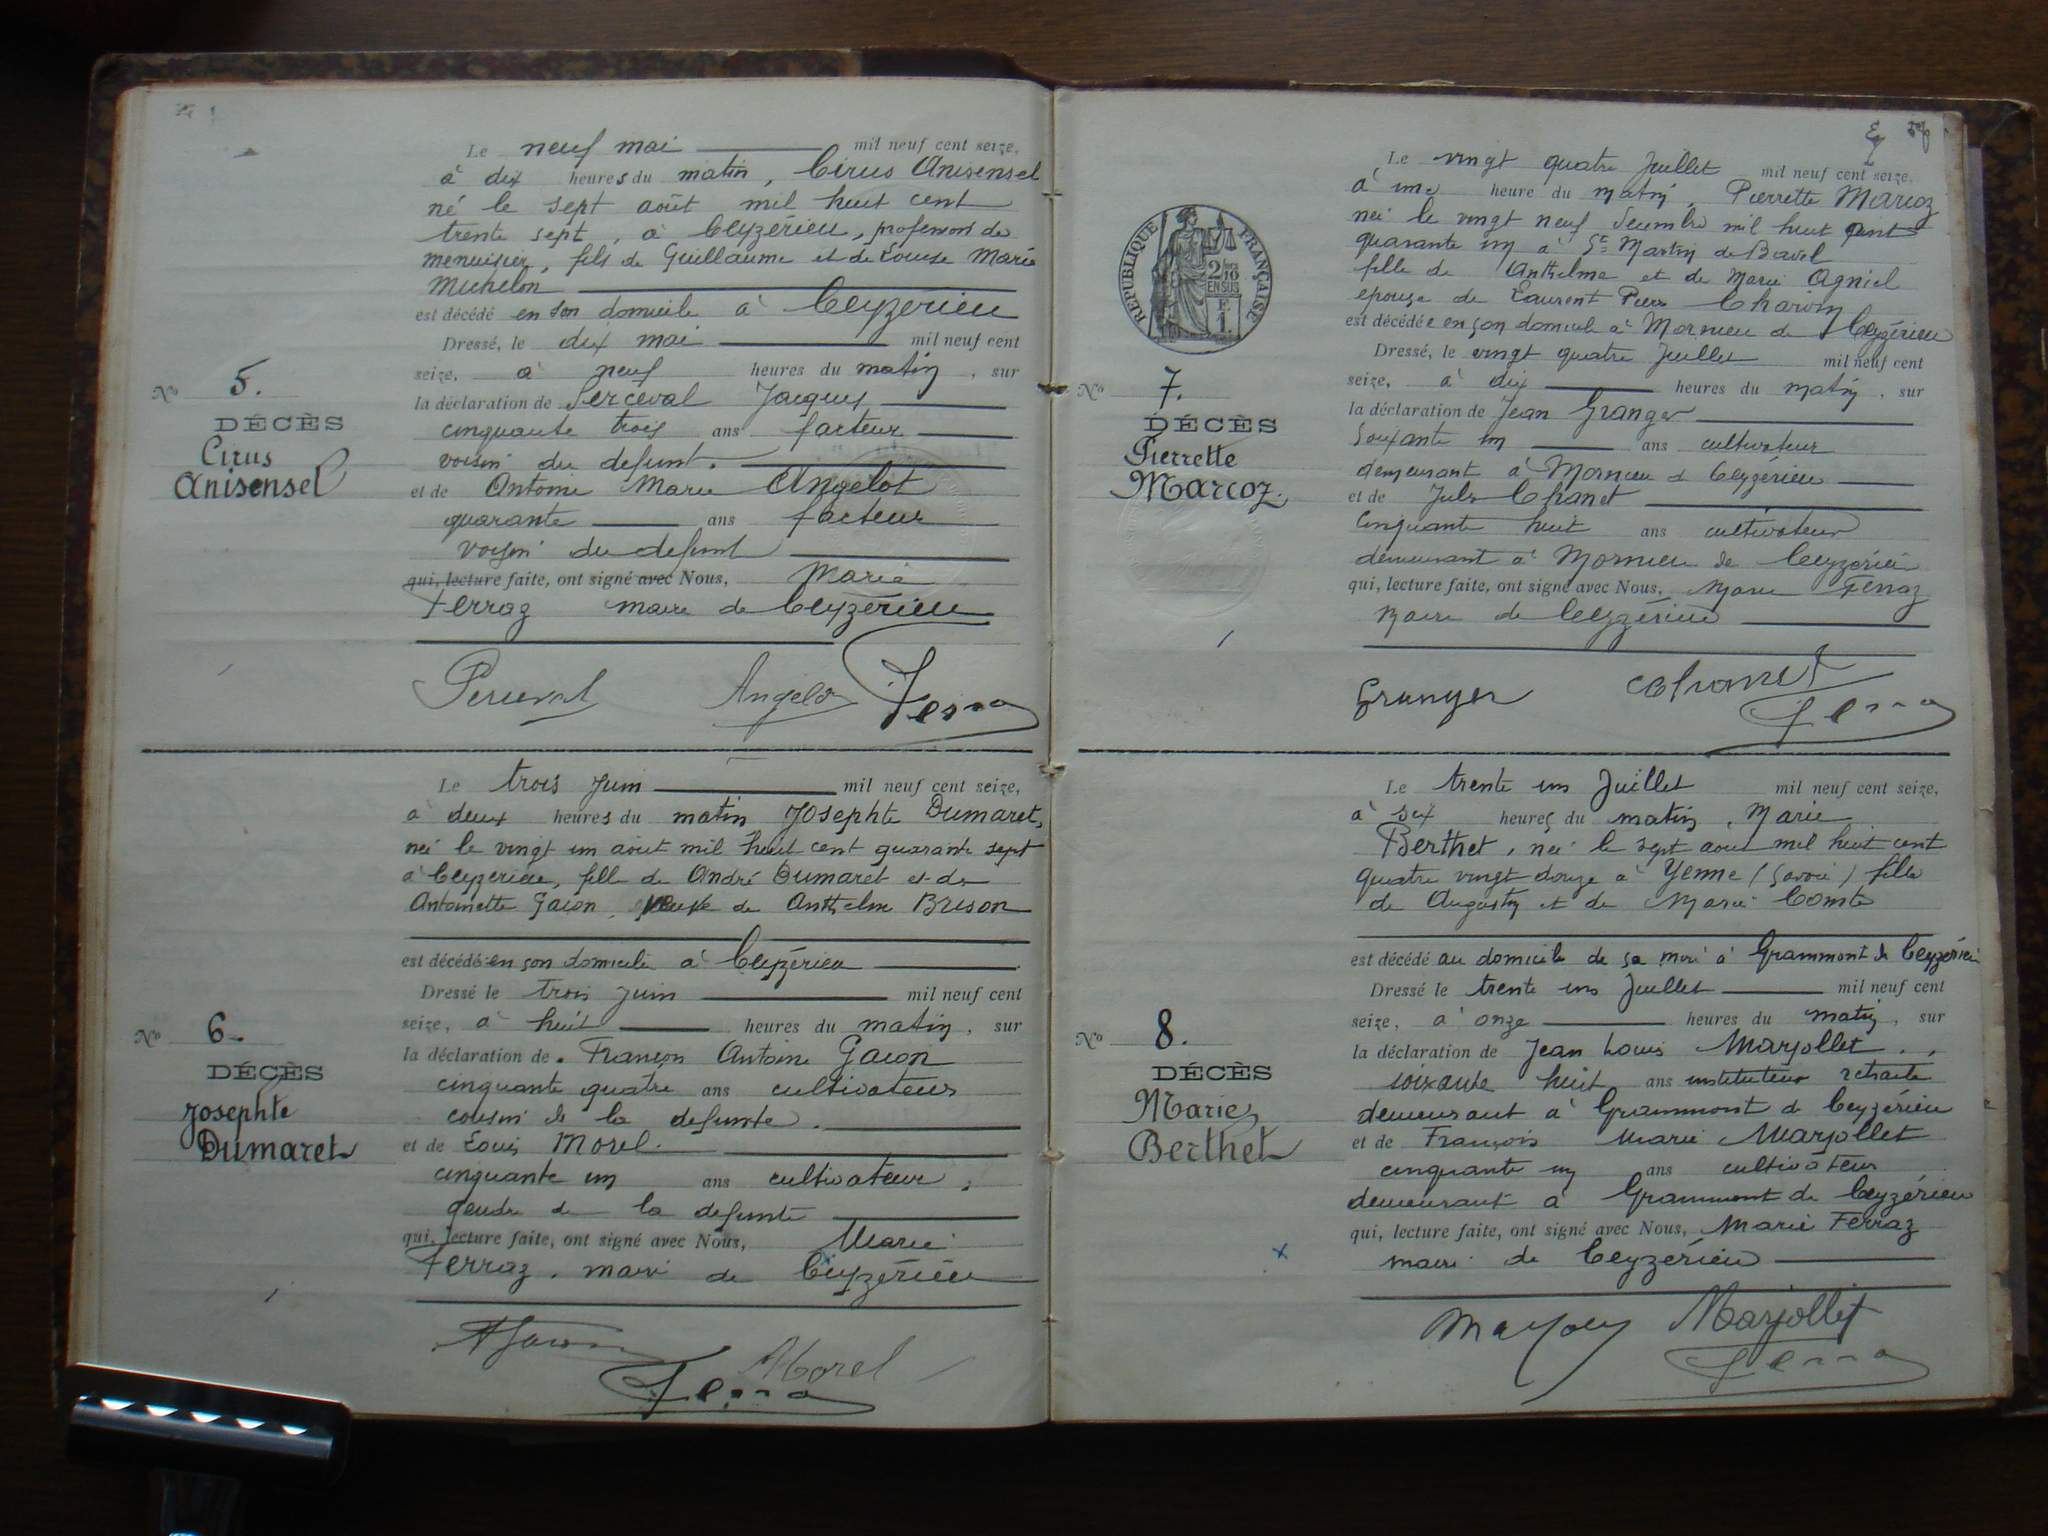 Le neuf mai mil neuf cent seize,
à dix heures du matin, Cirus Anisensel
né le sept août mil huit cent
trente sept, à Ceyzérieu, profession de
menuisier, fils de Guillaume et de Louise Marie
Michelon
est décédé en son domicile à Ceyzérieu
Dressé, le dix mai mil neuf cent
seize, à neuf heures du matin, sur
la déclaration de Perceval Jacques
cinquante trois ans facteur
voisin du defunt.
et de Antoine Marie Angelot
quarante ans facteur
voisin du defunt
qui, lecture faite, ont signé avec Nous, Marie
Ferraz maire de Ceyzérieu
No 5.
DÉCÈS
Cirus
Anisensel
Perceval Angelot Ferraz
Le trois juin mil neuf cent seize,
à deux heures du matin Josephte Dumaret,
née le vingt un aout mil huit cent quarante sept
à Ceyzerieu, fille de André Dumaret et de
Antoinette Gacon, veuve de Anthelme Brison
est décédé en son domicile à Ceyzérieu
Dressé le trois juin mil neuf cent
seize, à huit heures du matin, sur
la déclaration de François Antoine Gacon
cinquante quatre ans cultivateur
cousin de la defunte.
et de Louis Morel.
cinquante un ans cultivateur,
gendre de la defunte
qui, lecture faite, ont signé avec Nous, Marie
Ferraz, maire de Ceyzérieu
No 6.
DÉCÈS
Josephte
Dumaret
AGacon Morel
Ferraz
Le vingt quatre Juillet mil neuf cent seize,
à une heure du matin, Pierrette Marcoz
née le vingt neuf Decembre mil huit cent
quarante un à St Martin de Bavel
fille de Anthelme et de Marie Agniel
épouse de Laurent Pierre Charvin
est décédée en son domicile à Mornieu de Ceyzérieu
Dressé, le vingt quatre Juillet mil neuf cent
seize, à dix heures du matin, sur
la déclaration de Jean Granger
Soixante un ans cultivateur
demeurant à Mornieu d Ceyzérieu
et de Jules Chanet
Cinquante huit ans cultivateur
demeurant à Mornieu de Ceyzérieu
qui, lecture faite, ont signé avec Nous, Marie Ferraz
Maire de Ceyzérieu
RÉPUBLIQUE FRANÇAISE
2/10
EN SUS
No 7.
DÉCÈS
Pierrette
Marcoz.
Granger Chanet
Ferraz
Le trente un Juillet mil neuf cent seize,
à six heures du matin, Marie
Berthet, née le sept aout mil huit cent
quatre vingt douze à Yenne (Savoie) fille
de Augustin et de Marie Comte
est décédé au domicile de sa mère à Grammont de Ceyzérieu
Dressé le trente un Juillet mil neuf cent
seize, à onze heures du matin, sur
la déclaration de Jean Louis Marjollet
soixante huit ans instituteur retraité
demeurant à Grammont d Ceyzérieu
et de François Marie Marjollet
cinquante un ans cultivateur
demeurant à Grammont de Ceyzérieu
qui, lecture faite, ont signé avec Nous, Marie Ferraz
maire de Ceyzérieu
No 8.
DÉCÈS
Marie
Berthet
Marjollet
Ferraz